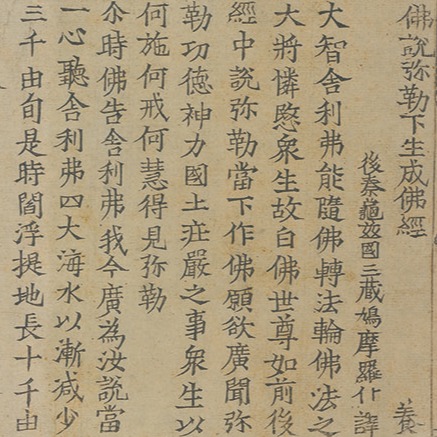 佛說弥勒下生成佛經 養
後秦龜兹國三藏鳩摩羅什譯
大智舍利弗能隨佛轉法輪佛法之
大將憐愍衆生故白佛世尊如前後
經中說弥勒當下作佛願欲廣聞弥
勒功德神力國土莊嚴之事衆生以
何施何戒何慧得見弥勒
尒時佛告舍利弗我今廣為汝說當
一心聽舍利弗四大海水以漸减少
三千由旬是時閻浮提地長十千由